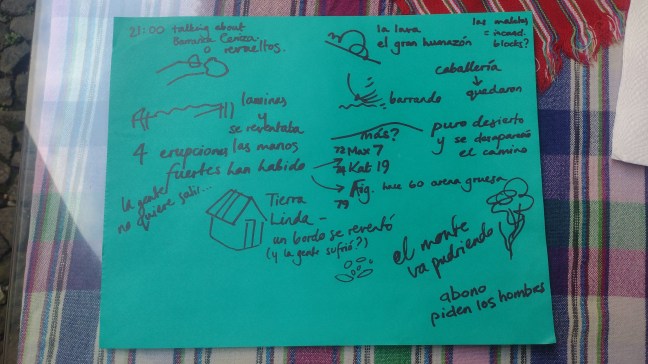 21:00 talking about
Barranca Ceniza
o revueltos.
la lava
el gran humazón
las maletas
= incand.
blocks?
caballería
↓
quedaron
barrando
laminas
y
se reventaba
puro desierto
y se desapareció
el camino
4 erupciones las manos
fuertes han habido
más?
72 Max 7
74 Kat 19
Fig. hace 60 arena gruesa
79
la gente
no quiere salir...
Tierra
Linda –
un bordo se reventó
(y la gente sufrió?)
el monte
va pudriendo
abono
piden los hombres